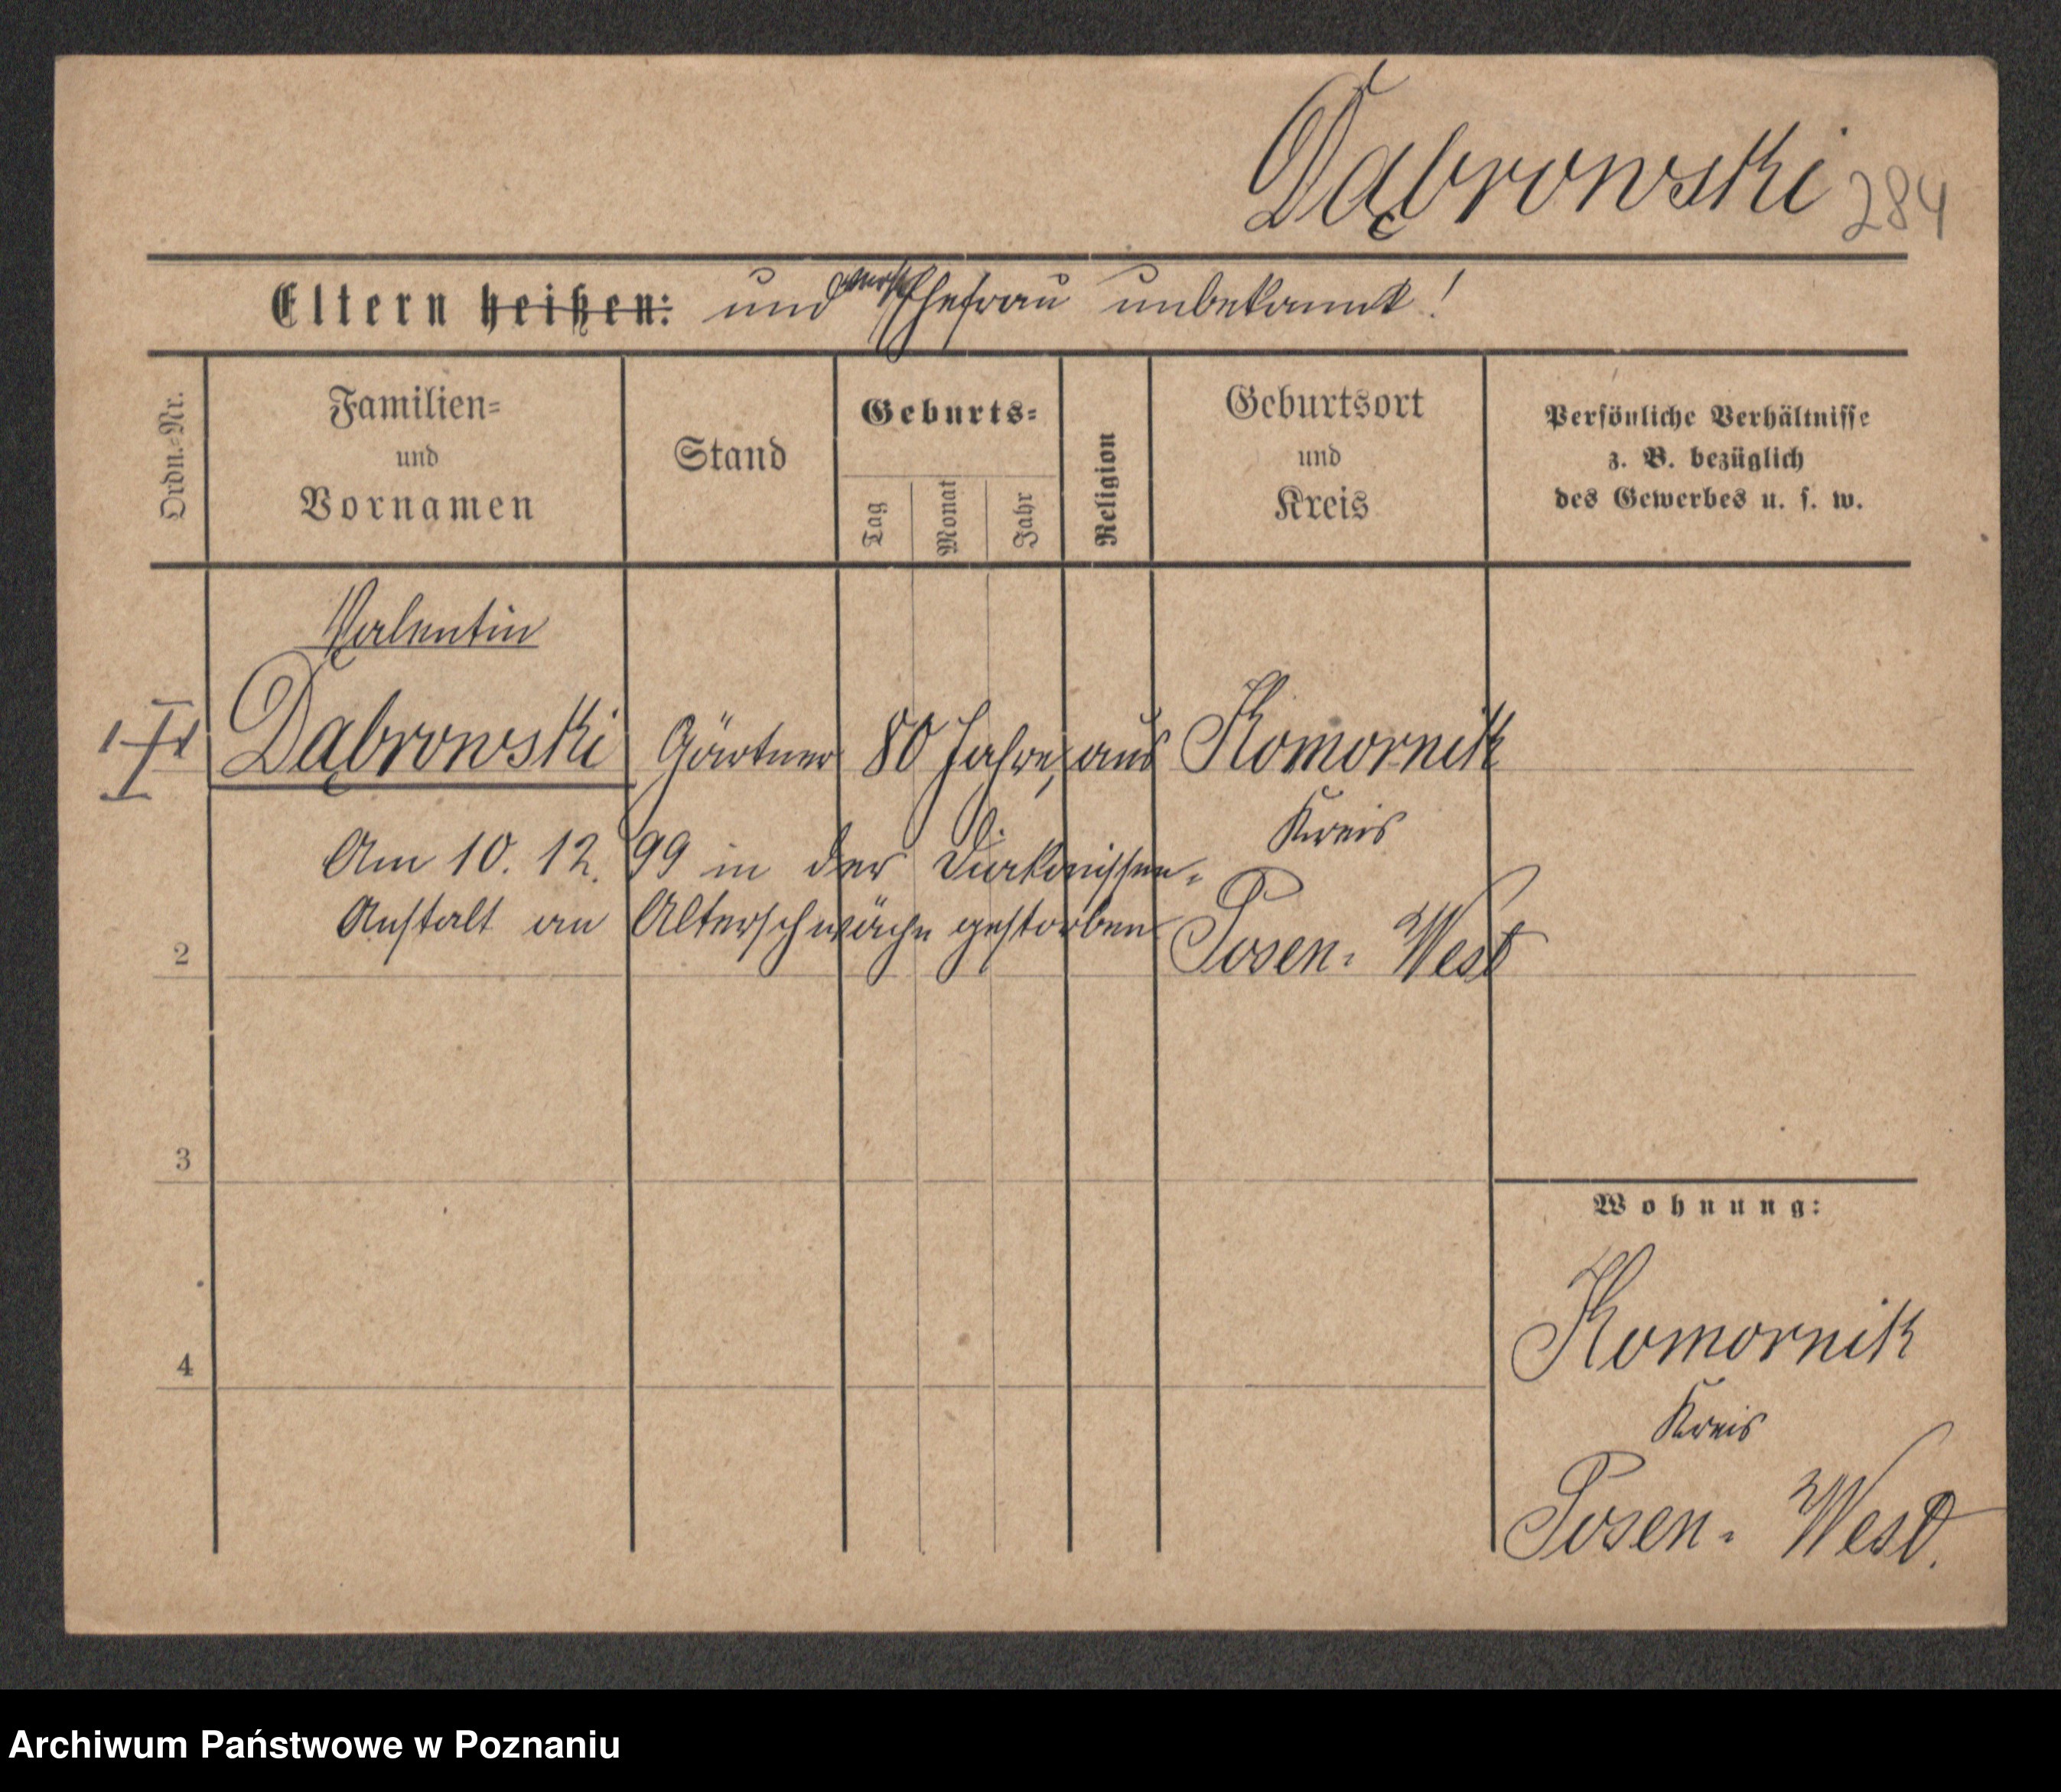 Dąbrowski 284
Eltern heißen: und Ehefrau unbekannt!
Ordn.-Nr.
Familien-
und
Vornamen
Stand
Geburts-
Tag
Monat
Jahr
Religion
Geburtsort
und
Kreis
Persönliche Verhältnisse
z. B. bezüglich
des Gewerbes u. s. w.
Valentin
Dąbrowski Gärtner 80 Jahre, aus Komornik
Kreis
Am 10. 12. 99 in der Diakonissen-
Anstalt an Alterschwäche gestorben
Posen-West
2
3
4
Wohnung:
Komornik
Kreis
Posen-West.
Archiwum Państwowe w Poznaniu